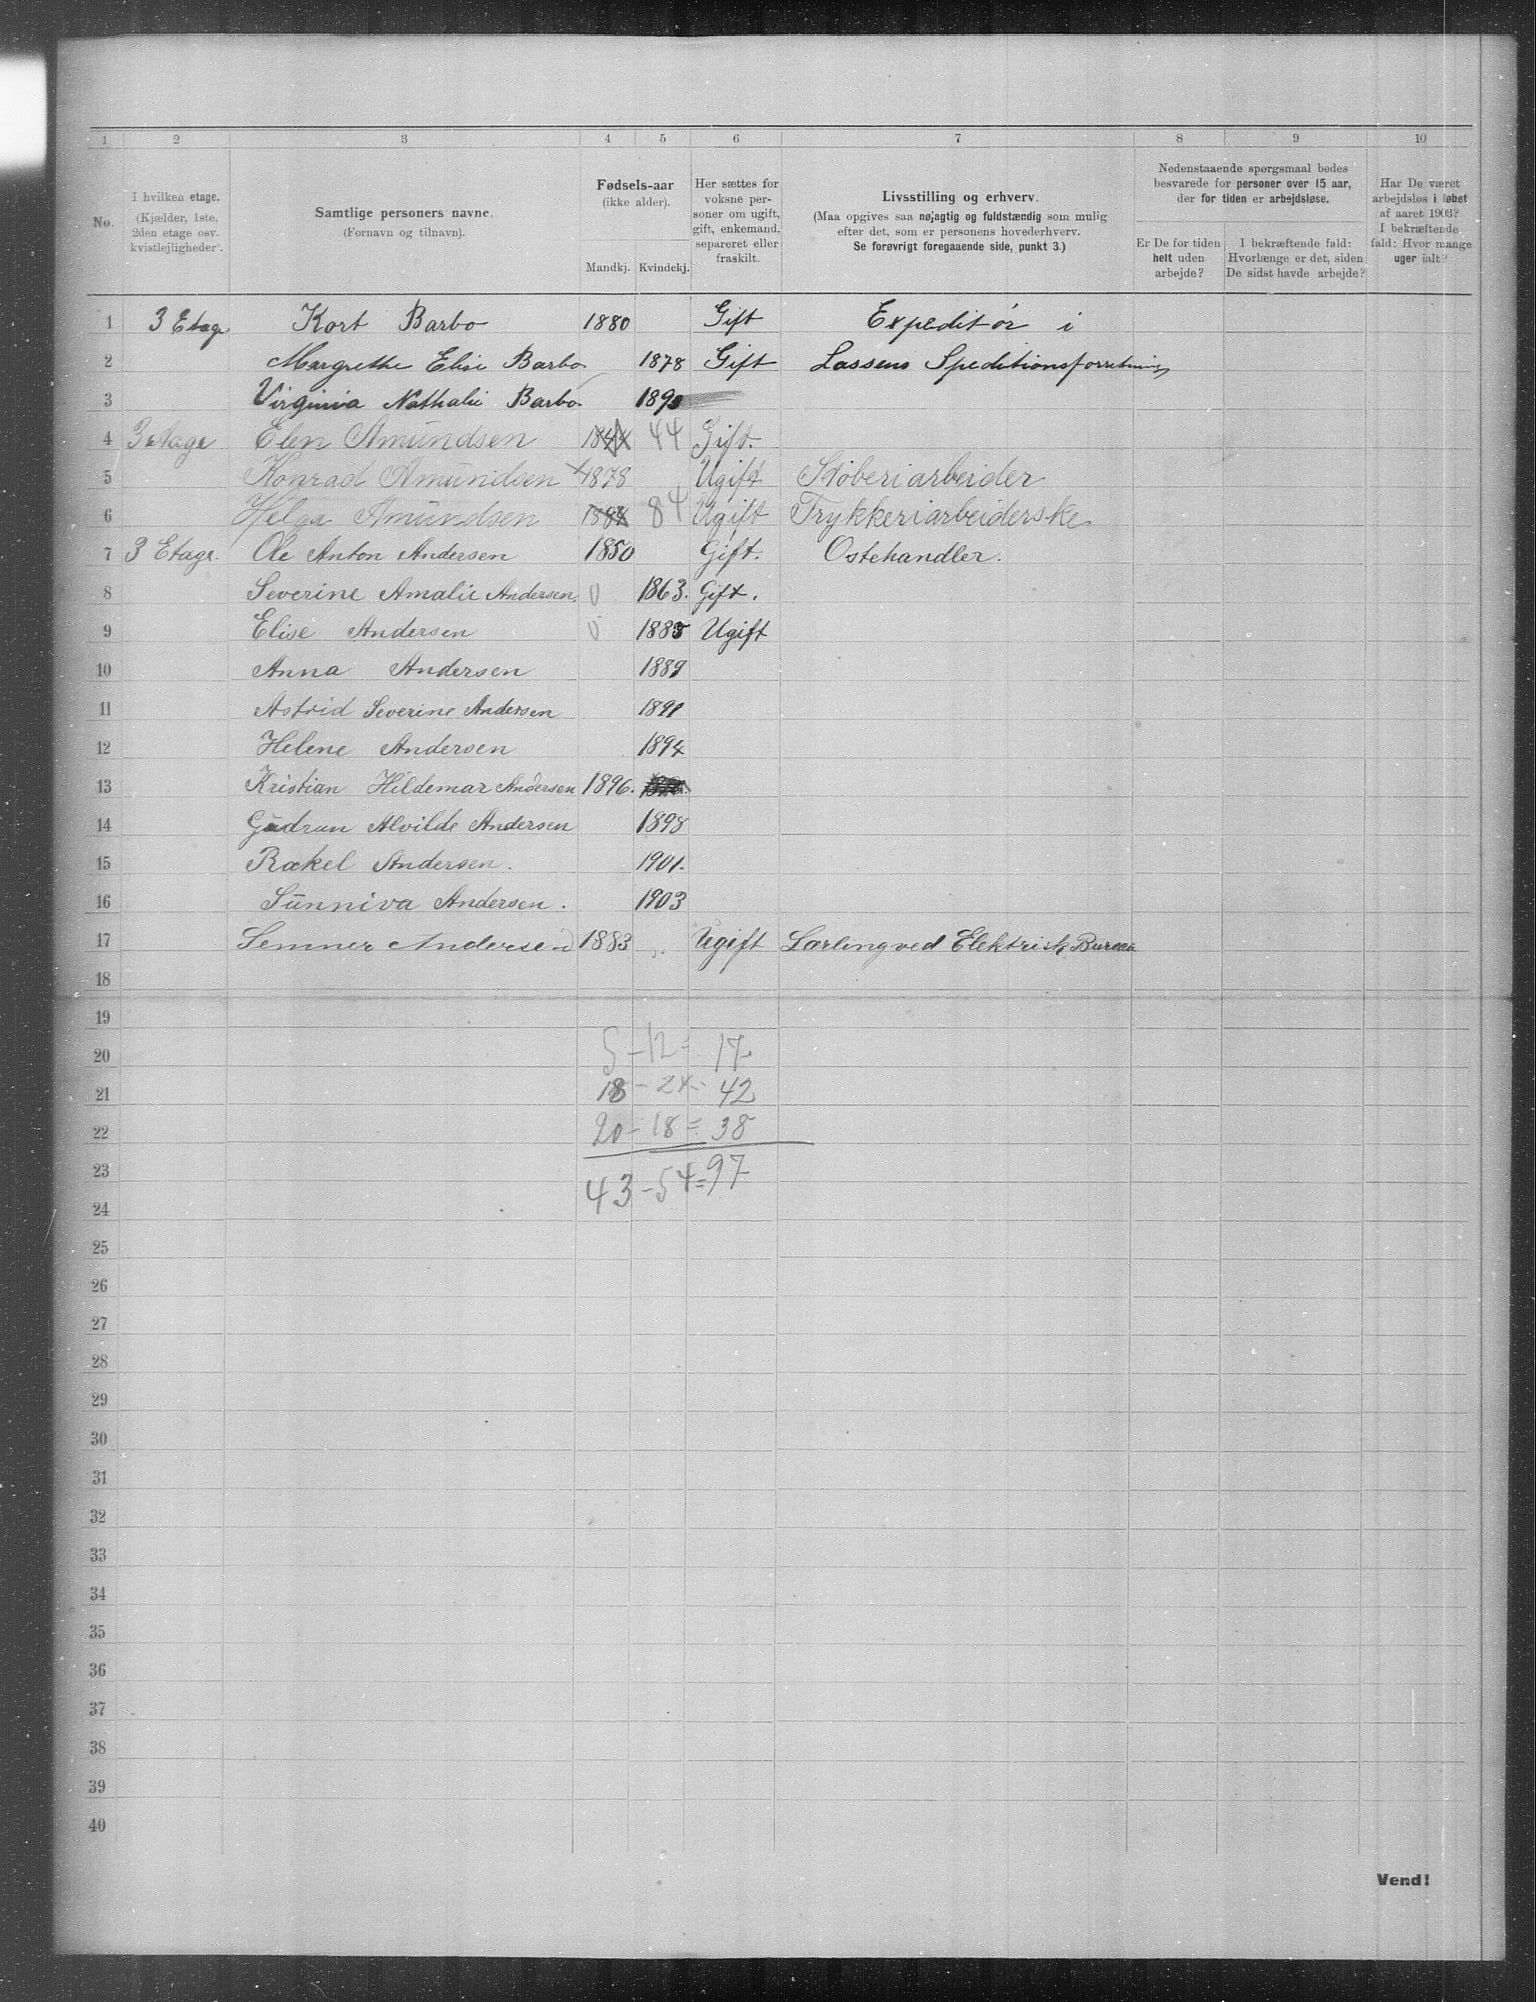 1 2 3 4 5 6 7 8 9 10
No.
I hvilken etage.
(Kjælder, 1ste,
2den etage osv.
kvistlejligheder).
Samtlige personers navne.
(Fornavn og tilnavn).
Fødsels-aar
(ikke alder).
Mandkj. Kvindekj.
Her sættes for
voksne per-
soner om ugift,
gift, enkemand,
separeret eller
fraskilt.
Livsstilling og erhverv.
(Maa opgives saa nøjagtig og fuldstændig som mulig
efter det, som er personens hovederhverv.
Se forøvrigt foregaaende side, punkt 3.)
Nedenstaaende spørgsmaal bedes
besvarede for personer over 15 aar,
der for tiden er arbejdsløse.
Er De for tiden
helt uden
arbejde?
I bekræftende fald:
Hvorlænge er det, siden
De sidst havde arbejde?
Har De været
arbejdsløs i løbet
af aaret 1903?
I bekræftende
fald: Hvor mange
uger ialt?
1 3 Etage Kort Barbo 1880 Gift Expeditør i
2 Margrethe Elise Barbo 1878 Gift Lassens Speditionsforretning
3 Virginia Nathalie Barbo
4 3 etage Elen Amundsen 44 Gift.
5 Konrad Amundsen 1878 Ugift Støberiarbeider
6 Helga Amundsen 84 Ugift Trykkeriarbeiderske
7 3 Etage. Ole Anton Andersen 1850 Gift. Ostehandler.
8 Severine Amalie Andersen. 1863. Gift.
9 Elise Andersen 1885 Ugift
10 Anna Andersen 1889
11 Astrid Severine Andersen 1891
12 Helene Andersen 1894
13 Kristian Hildemar Andersen 1896.
14 Gudrun Alvilde Andersen 1898
15 Rakel Andersen. 1901.
16 Sunniva Andersen. 1903
17 Semner Andersen 1883 Ugift Lærling ved Elektrisk Bureau
18
19
20 5-12= 17
21 18-24= 42
22 20-18= 38
23 43-54=97
24
25
26
27
28
29
30
31
32
33
34
35
36
37
38
39
40
Vend!